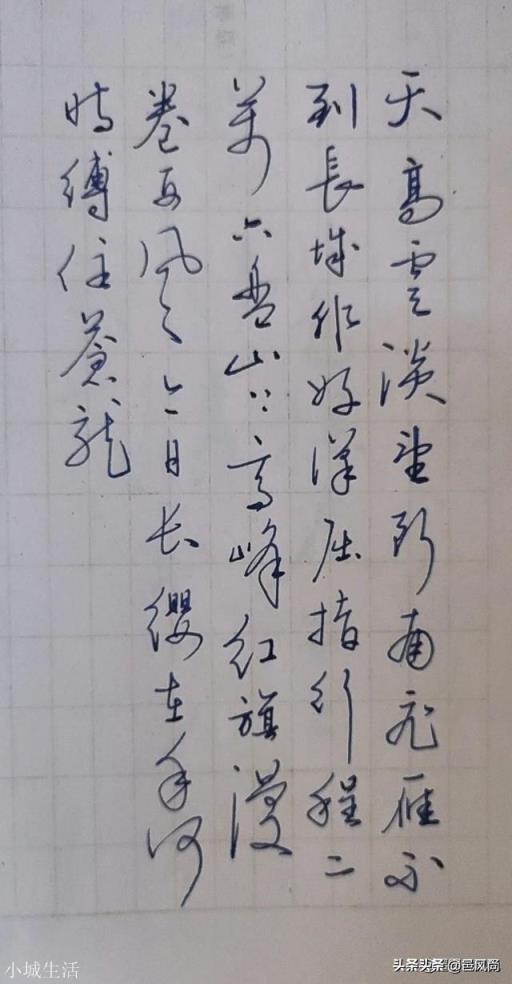 天高雲淡望断南飛雁不
到長城非好漢屈指行程二
萬六盘山上高峰红旗漫
卷西风今日长缨在手何
時縛住蒼龍
小城生活
头条 @邑风尚